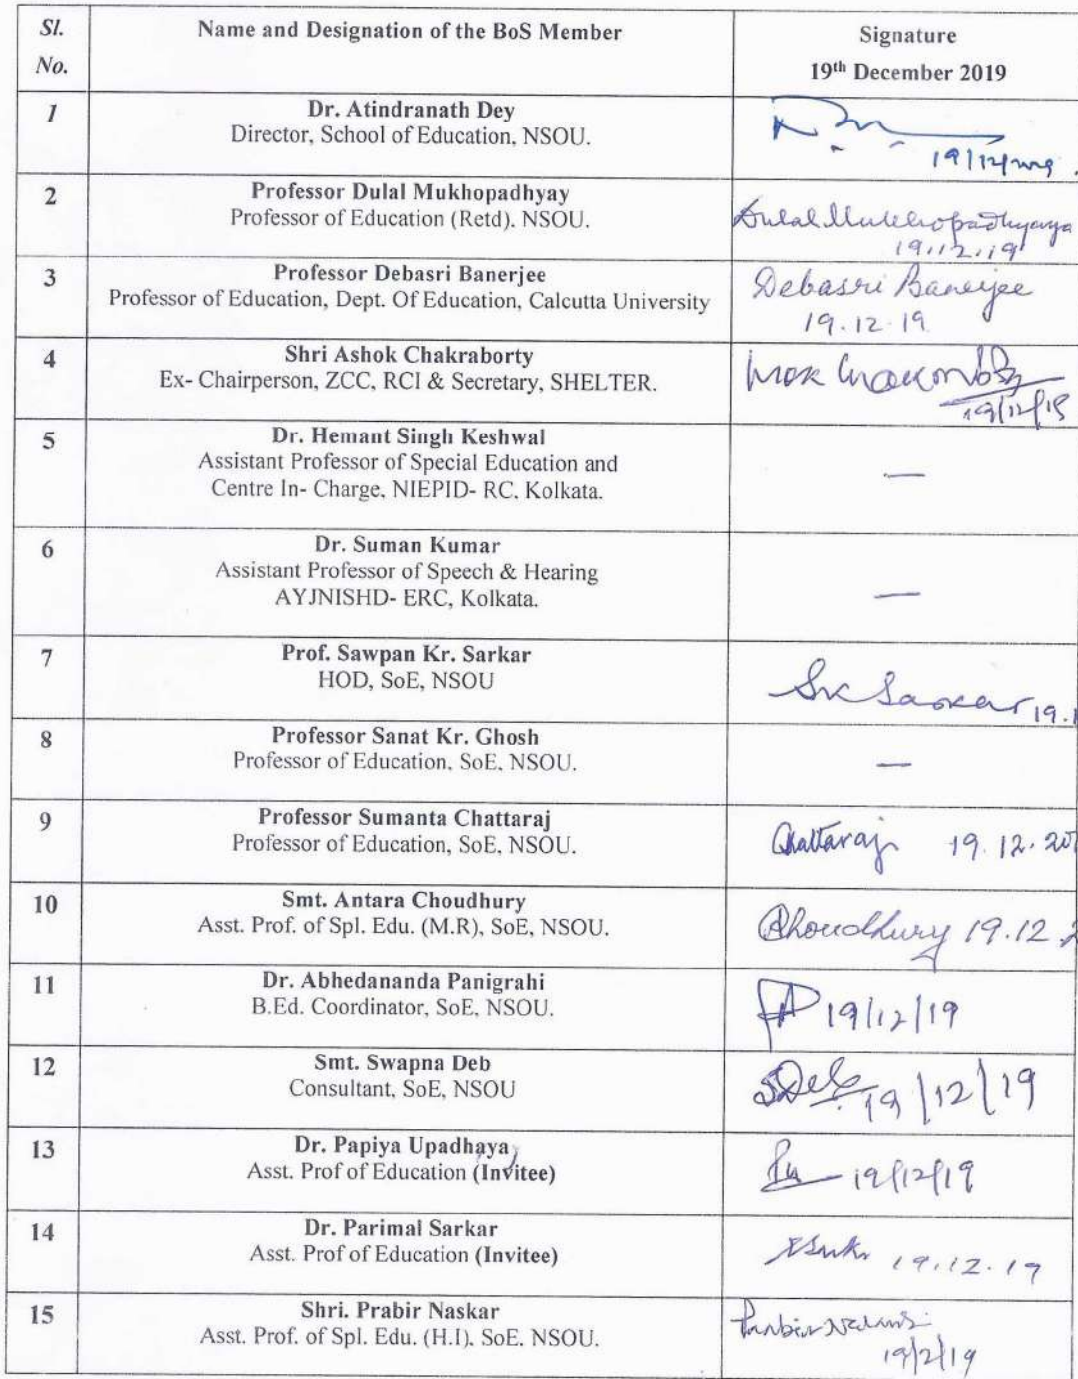 Sl. No.
Name and Designation of the BoS Member
Signature
19th December 2019
1
Dr. Atindranath Dey
Director, School of Education, NSOU.
2
Professor Dulal Mukhopadhyay
Professor of Education (Retd). NSOU.
Dulal Mukhopadhyaya
19.12.19
3
Professor Debasri Banerjee
Professor of Education, Dept. Of Education, Calcutta University
Debasri Banerjee
19.12.19
4
Shri Ashok Chakraborty
Ex- Chairperson, ZCC, RCI & Secretary, SHELTER.
5
Dr. Hemant Singh Keshwal
Assistant Professor of Special Education and
Centre In- Charge, NIEPID- RC, Kolkata.
—
6
Dr. Suman Kumar
Assistant Professor of Speech & Hearing
AYJNISHD- ERC, Kolkata.
—
7
Prof. Sawpan Kr. Sarkar
HOD, SoE, NSOU
SK Sarkar 19.1
8
Professor Sanat Kr. Ghosh
Professor of Education, SoE, NSOU.
—
9
Professor Sumanta Chattaraj
Professor of Education, SoE, NSOU.
Chattaraj 19.12.20
10
Smt. Antara Choudhury
Asst. Prof. of Spl. Edu. (M.R), SoE, NSOU.
Choudhury 19.12.2
11
Dr. Abhedananda Panigrahi
B.Ed. Coordinator, SoE, NSOU.
19/12/19
12
Smt. Swapna Deb
Consultant, SoE, NSOU
SDeb 19/12/19
13
Dr. Papiya Upadhaya
Asst. Prof of Education (Invitee)
19/12/19
14
Dr. Parimal Sarkar
Asst. Prof of Education (Invitee)
19.12.19
15
Shri. Prabir Naskar
Asst. Prof. of Spl. Edu. (H.I). SoE. NSOU.
Prabir Naskar
19/2/19